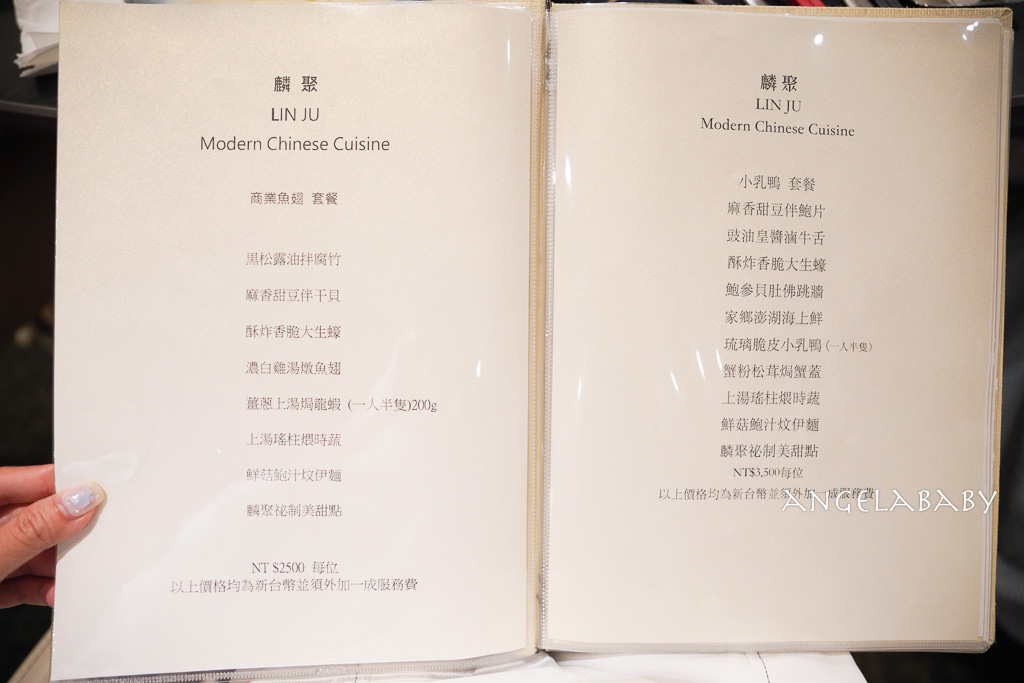 麟 聚
LIN JU
Modern Chinese Cuisine
商業魚翅 套餐
黑松露油拌腐竹
麻香甜豆伴干貝
酥炸香脆大生蠔
濃白雞湯燉魚翅
薑蔥上湯焗龍蝦 (一人半隻)200g
上湯瑤柱煨時蔬
鮮菇鮑汁炆伊麵
麟聚祕制美甜點
NT $2500 每位
以上價格均為新台幣並須外加一成服務費
麟 聚
LIN JU
Modern Chinese Cuisine
小乳鴨 套餐
麻香甜豆伴鮑片
豉油皇醬滷牛舌
酥炸香脆大生蠔
鮑參貝肚佛跳牆
家鄉澎湖海上鮮
琉璃脆皮小乳鴨 (一人半隻)
蟹粉松茸焗蟹蓋
上湯瑤柱煨時蔬
鮮菇鮑汁炆伊麵
麟聚祕制美甜點
NT$3,500每位
以上價格均為新台幣並須外加一成服務費
ANGELABABY